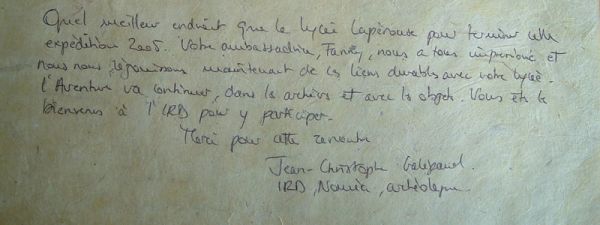 Quel meilleur endroit que le lycée Lapérouse pour terminer cette
expédition 2005. Votre ambassadrice, Fanny, nous a tous impressionné et
nous nous réjouissons maintenant de ces liens durables avec votre lycée.
l'Aventure va continuer, dans les archives et avec les objets. Vous êtes le
bienvenus à l'IRD pour y participer.
Merci pour cette rencontre
Jean-Christophe Galipaud
IRD, Nouméa, archéologue